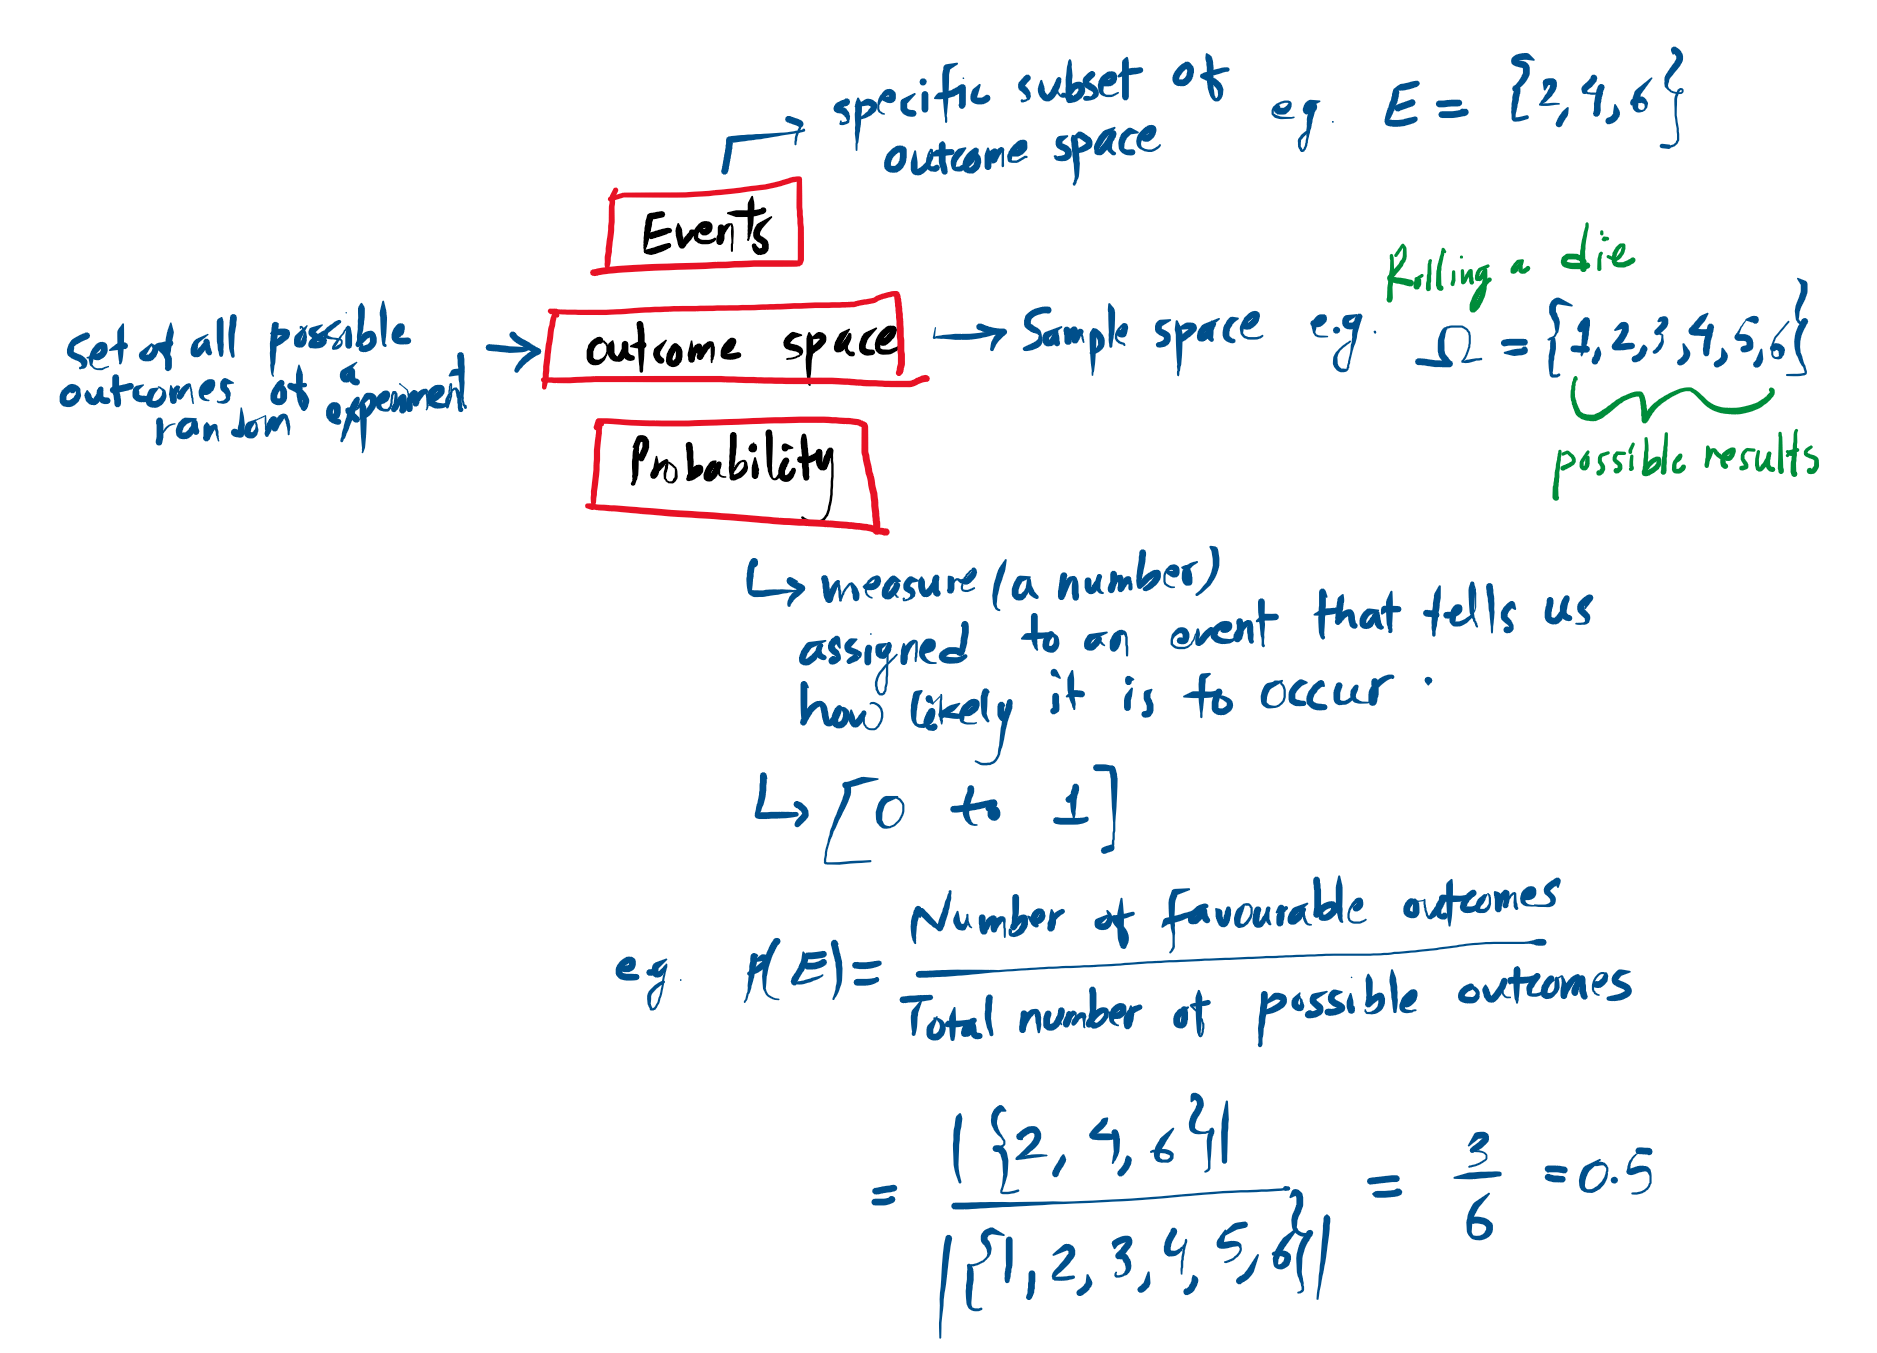 specific subset of
outcome space
eg. E = {2, 4, 6}
Events
Rolling a die
set of all possible
outcomes of a
random experiment
outcome space
Sample space e.g. Ω = {1, 2, 3, 4, 5, 6}
possible results
Probability
measure (a number)
assigned to an event that tells us
how likely it is to occur.
[0 to 1]
Number of favourable outcomes
e.g. P(E) =
Total number of possible outcomes
|{2, 4, 6}|
= = 3/6 = 0.5
|{1, 2, 3, 4, 5, 6}|